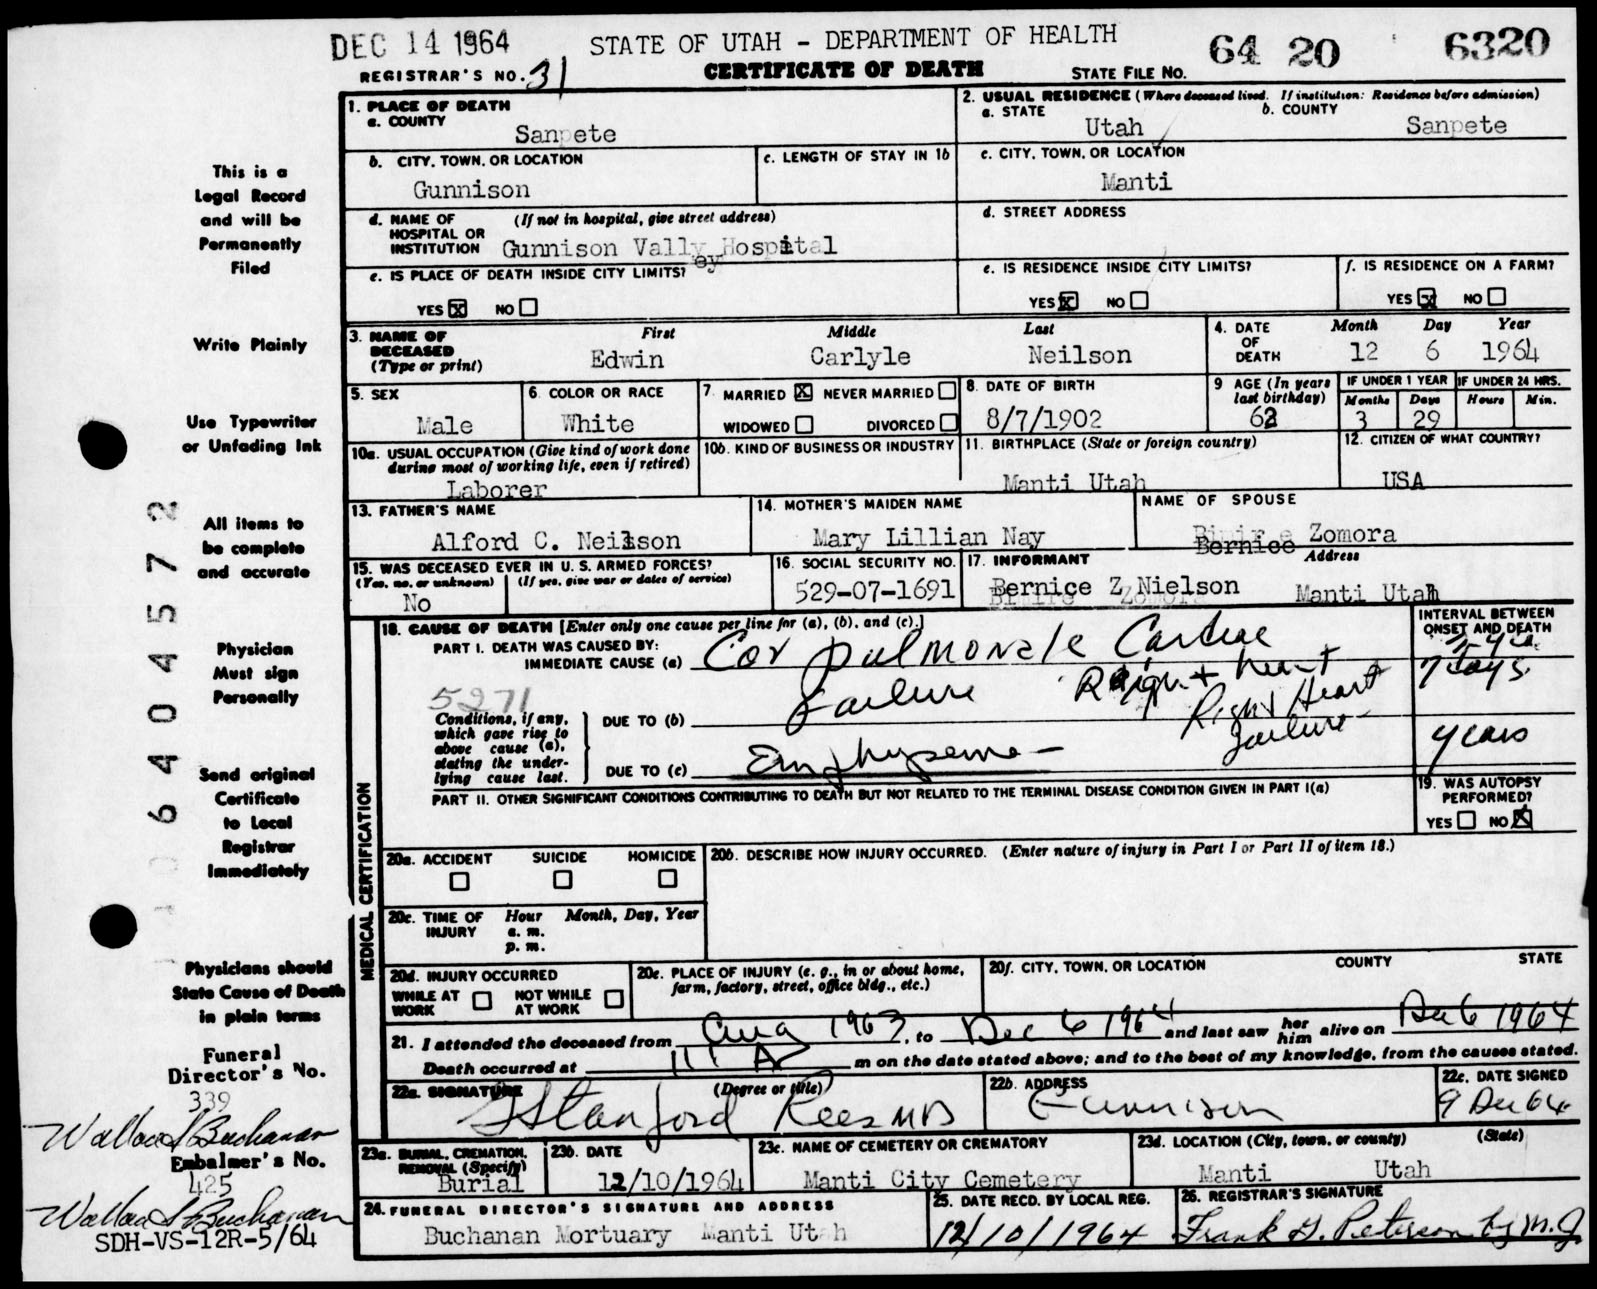 DEC 14 1964
STATE OF UTAH - DEPARTMENT OF HEALTH
64 20 6320
REGISTRAR'S NO. 31
CERTIFICATE OF DEATH
STATE FILE NO.
1. PLACE OF DEATH
a. COUNTY
Sanpete
2. USUAL RESIDENCE (Where deceased lived. If institution: Residence before admission)
a. STATE
Utah
b. COUNTY
Sanpete
b. CITY, TOWN, OR LOCATION
Gunnison
c. LENGTH OF STAY IN 1b
c. CITY, TOWN, OR LOCATION
Manti
d. NAME OF HOSPITAL OR INSTITUTION (If not in hospital, give street address)
Gunnison Vally Hospital
ey
d. STREET ADDRESS
e. IS PLACE OF DEATH INSIDE CITY LIMITS?
YES X NO
e. IS RESIDENCE INSIDE CITY LIMITS?
YES X NO
f. IS RESIDENCE ON A FARM?
YES X NO
3. NAME OF DECEASED (Type or print)
First Middle Last
Edwin Carlyle Neilson
4. DATE OF DEATH
Month Day Year
12 6 1964
5. SEX
Male
6. COLOR OR RACE
White
7. MARRIED X NEVER MARRIED
WIDOWED DIVORCED
8. DATE OF BIRTH
8/7/1902
9 AGE (In years last birthday)
62
IF UNDER 1 YEAR
Months Days
3 29
IF UNDER 24 HRS.
Hours Min.
10a. USUAL OCCUPATION (Give kind of work done during most of working life, even if retired)
Laborer
10b. KIND OF BUSINESS OR INDUSTRY
11. BIRTHPLACE (State or foreign country)
Manti Utah
12. CITIZEN OF WHAT COUNTRY?
USA
13. FATHER'S NAME
Alford C. Neilson
14. MOTHER'S MAIDEN NAME
Mary Lillian Nay
NAME OF SPOUSE
Zomora
Bernice
15. WAS DECEASED EVER IN U. S. ARMED FORCES?
(Yes, no, or unknown) (If yes, give war or dates of service)
No
16. SOCIAL SECURITY NO.
529-07-1691
17. INFORMANT Address
Bernice Z Nielson Manti Utah
MEDICAL CERTIFICATION
18. CAUSE OF DEATH [Enter only one cause per line for (a), (b), and (c).]
INTERVAL BETWEEN ONSET AND DEATH
PART I. DEATH WAS CAUSED BY:
IMMEDIATE CAUSE (a) Cor pulmonale Cardiac
failure Right heart
7 days
5271
Conditions, if any, which gave rise to above cause (a), stating the underlying cause last.
DUE TO (b)
Right Heart
failure
DUE TO (c) Emphysema
years
PART II. OTHER SIGNIFICANT CONDITIONS CONTRIBUTING TO DEATH BUT NOT RELATED TO THE TERMINAL DISEASE CONDITION GIVEN IN PART I(a)
19. WAS AUTOPSY PERFORMED?
YES NO X
20a. ACCIDENT SUICIDE HOMICIDE
20b. DESCRIBE HOW INJURY OCCURRED. (Enter nature of injury in Part I or Part II of item 18.)
20c. TIME OF INJURY
Hour Month, Day, Year
a. m.
p. m.
20d. INJURY OCCURRED
WHILE AT WORK NOT WHILE AT WORK
20e. PLACE OF INJURY (e. g., in or about home, farm, factory, street, office bldg., etc.)
20f. CITY, TOWN, OR LOCATION COUNTY STATE
21. I attended the deceased from Aug 1963, to Dec 6 1964 and last saw her him alive on Dec 6 1964
Death occurred at 11 A m on the date stated above; and to the best of my knowledge, from the causes stated.
22a. SIGNATURE (Degree or title)
Stanford Rees MD
22b. ADDRESS
Gunnison
22c. DATE SIGNED
9 Dec 64
23a. BURIAL, CREMATION, REMOVAL (Specify)
Burial
23b. DATE
12/10/1964
23c. NAME OF CEMETERY OR CREMATORY
Manti City Cemetery
23d. LOCATION (City, town, or county) (State)
Manti Utah
24. FUNERAL DIRECTOR'S SIGNATURE AND ADDRESS
Buchanan Mortuary Manti Utah
25. DATE RECD. BY LOCAL REG.
12/10/1964
26. REGISTRAR'S SIGNATURE
Frank G. Peterson by M. J.
This is a
Legal Record
and will be
Permanently
Filed
Write Plainly
Use Typewriter
or Unfading Ink
All items to
be complete
and accurate
Physician
Must sign
Personally
Send original
Certificate
to Local
Registrar
Immediately
Physicians should
State Cause of Death
in plain terms
Funeral
Director's No.
339
Buchanan
Embalmer's No.
425
Buchanan
SDH-VS-12R-5/64